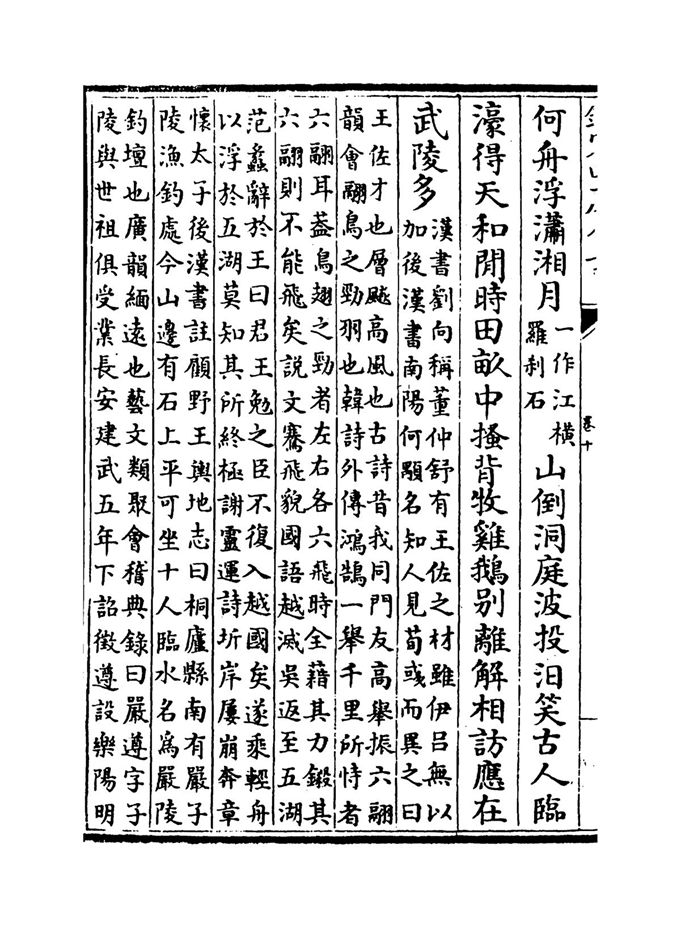 何舟浮瀟湘月一作江橫
羅刹石山倒洞庭波投汨笑古人臨
濠得天和閒時田畝中搔背牧雞鵝别離解相訪應在
武陵多漢書劉向稱董仲舒有王佐之材雖伊吕無以
加後漢書南陽何顒名知人見荀彧而異之曰
王佐才也層飈高風也古詩昔我同門友高舉振六翮
韻會翮鳥之勁羽也韓詩外傳鴻鵠一舉千里所恃者
六翮耳葢鳥翅之勁者左右各六飛時全藉其力鎩其
六翮則不能飛矣説文騫飛貌國語越滅吳返至五湖
范蠡辭於王曰君王勉之臣不復入越國矣遂乘輕舟
以浮於五湖莫知其所終極謝靈運詩圻岸屢崩奔章
懷太子後漢書註顧野王輿地志曰桐廬縣南有嚴子
陵漁釣處今山邊有石上平可坐十人臨水名爲嚴陵
釣壇也廣韻緬遠也藝文類聚會稽典錄曰嚴遵字子
陵與世祖俱受業長安建武五年下詔徵遵設樂陽明
卷十